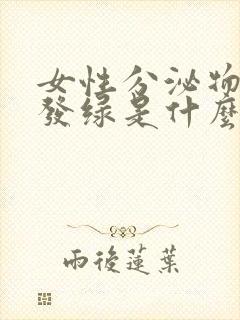 女性分泌物
發绿是什麼
雨後蓮葉